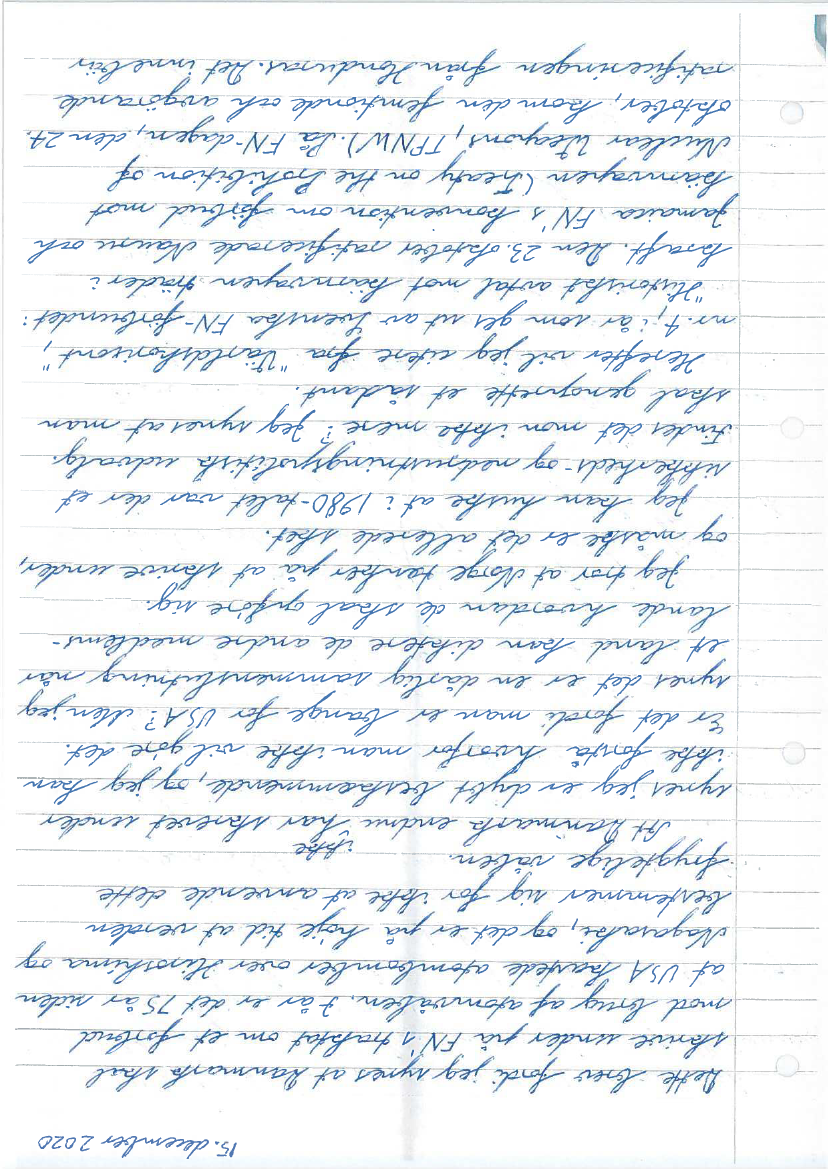 15. december 2020
Dette brev fordi jeg synes at Danmark skal
skrive under på FN's traktat om et forbud
mod brug af atomvåben. I år er det 75 år siden
at USA kastede atombomber over Hiroshima og
Nagasaki, og det er på høje tid at verden
bestemmer sig for ikke at anvende dette
frygtelige våben.
ikke
At Danmark endnu har skrevet under
synes jeg er dybt beskæmmende, og jeg kan
ikke forstå hvorfor man ikke vil gøre det.
Er det fordi man er bange for USA? Men jeg
synes det er en dårlig sammenslutning når
et land kan diktere de andre medlems-
lande hvordan de skal opføre sig.
Jeg tror at Norge tænker på at skrive under,
og måske er det allerede sket.
Jeg kan huske at i 1980-talet var der et
sikkerheds- og nedrustningspolitisk udvalg.
Findes det mon ikke mere? Jeg synes at man
skal genoprette et sådant.
Herefter vil jeg citere fra "Världshorisont",
nr. 4, i år som ges ut av Svenska FN-förbundet:
"Historiskt avtal mot kärnvapen träder i
kraft. Den 23. oktober ratificerade Nauru och
Jamaica FN's konvention om förbud mot
kärnvapen (Treaty on the Prohibition of
Nuclear Weapons, TPNW). På FN-dagen, den 24.
oktober, kom den femtionde och avgörande
ratificeringen från Honduras. Det innebär